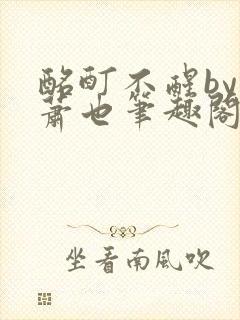 酩酊不醒by
萧也笔趣阁
坐看南風吹